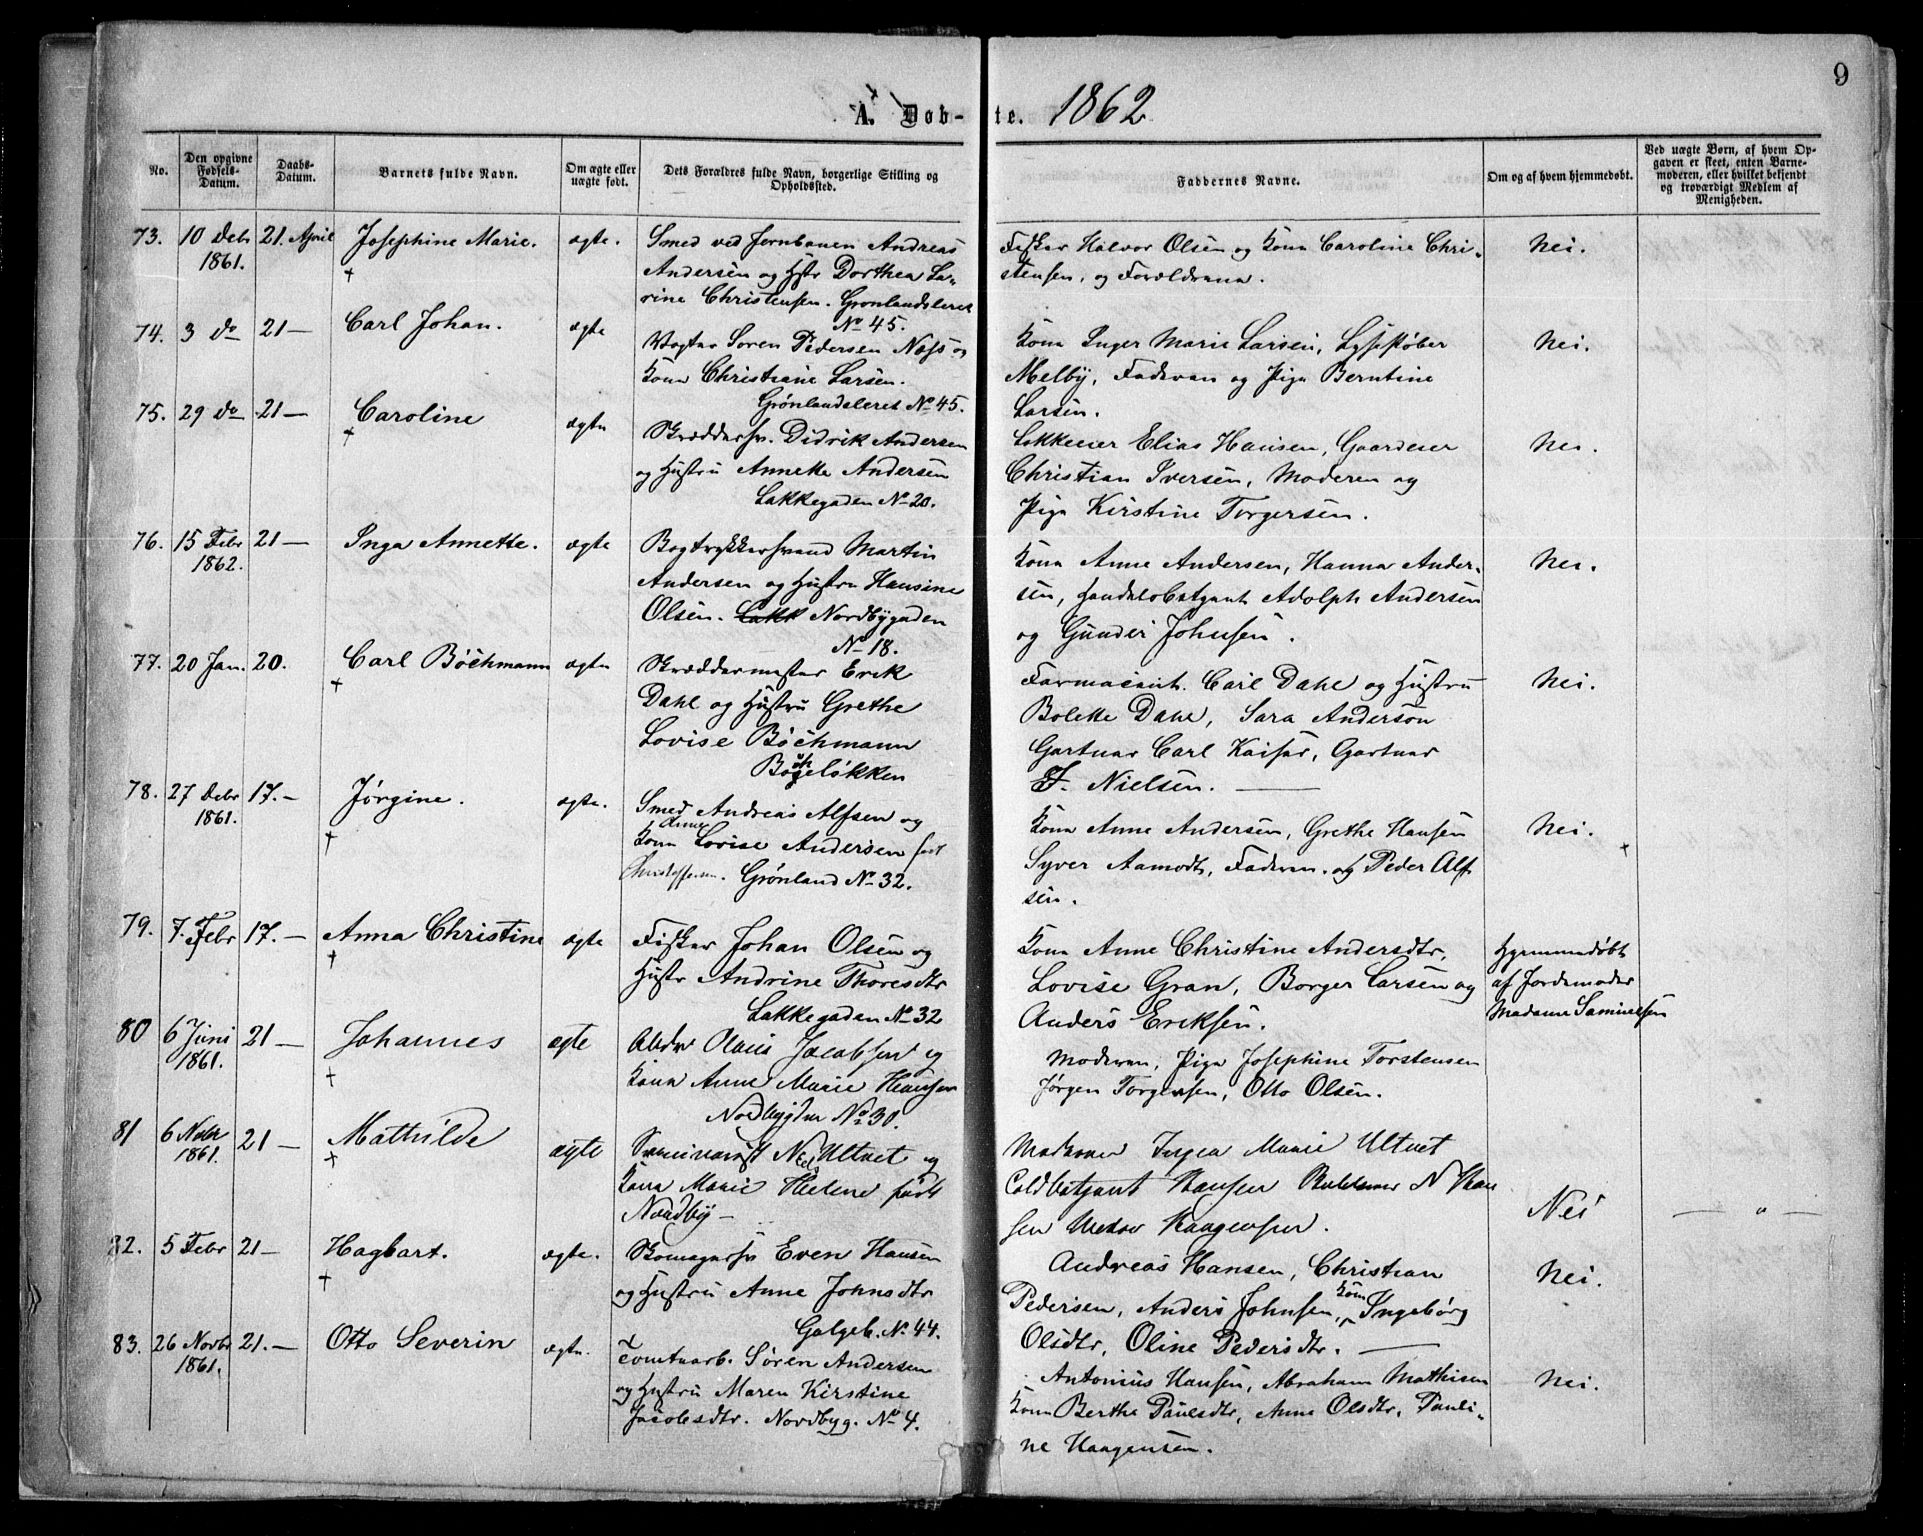 9
A. Døb-te. 1862
No. Den opgivne Fødsels-Datum. Daabs-Datum. Barnets fulde Navn. Om ægte eller uægte født. Dets Forældres fulde Navn, borgerlige Stilling og Opholdssted. Faddernes Navne. Om og af hvem hjemmedøbt. Ved uægte Børn, af hvem Opgaven er skeet, enten Barnemoderen, eller hvilket bekjendt og troværdigt Medlem af Menigheden.
73. 10 Debr 1861. 21. April Josephine Marie. ægte.
Smed ved Jernbanen Andreas
Andersen og Hstr Dorthea La-
rine Christensen. Grønlandsleret
No 45.
Fisker Halvor Olsen og Kona Caroline Chri-
stensen, og Forældrene.
Nei.
74. 3 do 21 — Carl Johan. ægte
Vogter Soren Pedersen Næss og
Kona Christiane Larsen.
Grønlandsleret No 45.
Kona Inger Marie Larsen, Lysestøber
Melby, Faderen og Pige Berntine
Larsen.
Nei.
75. 29 do 21 — Caroline ægte
Skræddersv. Didrik Andersen
og Hustru Anneke Andersen
Lakkegaden No 20.
Elias Hansen, Gaardeier
Christian Iversen, Moderen og
Pige Kirstine Torgersen.
Nei.
76. 15 Febr 1862. 21 — Inga Annette. ægte
Bogtrykkersvend Martin
Andersen og Hustru Hansine
Olsen. Lakk Nordbygaden
No 18.
Kona Anne Andersen, Hanna Ander-
sen, Handelsbetjent Adolph Andersen
og Gunder Johnsen.
Nei.
77. 20 Jan. 20. Carl Bøchmann ægte
Skræddermester Erik
Dahl og Hustru Grethe
Lovise Bøchmann
Bøgeløkken
Farmaceut. Carl Dahl og Hustru
Bolette Dahl, Sara Anderson
Gartner Carl Kaiser, Gartner
F. Nielsen. —
Nei.
78. 27 Debr 1861. 17. — Jørgine. ægte.
Smed Andreas Alfsen og
Kona Anne Lovise Andersen født
Christoffersen. Grønland No 32.
Kona Anne Andersen, Grethe Hansen
Syver Aamodt, Faderen. og Peder Alf-
sen.
Nei.
79. 7. Febr 17. — Anna Christine ægte
Fisker Johan Olsen og
Hustr Andrine Thoresdtr
Lakkegaden No 32
Kona Anne Christine Andersdtr,
Lovise Gran, Borger Larsen og
Anders Eriksen.
Hjemmedøbt
af Jordemoder
Madame Samuelsen
80 6 Juni 1861. 21 — Johannes ægte
Arbdr Olaus Jacobsen og
Kona Anne Marie Hansen
Nordbygdn No 30.
Moderen, Pige Josephine Torstensen
Jørgen Torgersen, Otto Olsen.
81 6 Nobr 1861. 21 — Mathilde ægte
Seminarist Ultvet og
Kona Marie Helene født
Nordby —
Inger Marie Ultvet
Hansen N Han
sen Haagensen.
Nei — " —
82. 5 Febr 21 — Hagbart. ægte.
Skomagersv Even Hansen
og Hustru Anne Johnsdtr
Galgeb. No 44.
Andreas Hansen, Christian
Pedersen, Anders Johnsen, Kona Ingeborg
Olsdtr, Oline Pedersdtr. —
Nei.
83. 26 Novbr 1861. 21. — Otto Severin ægte.
Tomtearb. Søren Andersen
og Hustru Maren Kirstine
Jacobsdtr. Nordbyg. No 4.
Antonius Hansen, Abraham Mathisen
Kona Berthe Paulsdtr, Anne Olsdtr, Pauli-
ne Haagensen.
Nei.